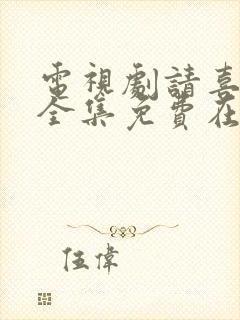 電視劇請喜
全集免費在
伍偉